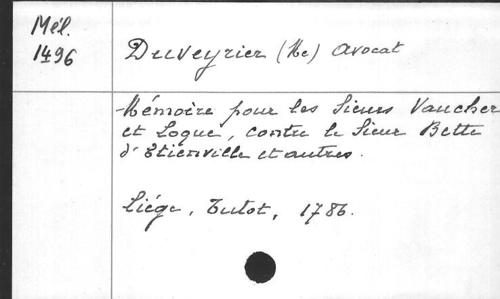 Mél.
1496
Duveyrier (Me) avocat
Mémoire pour les Sieurs Vaucher
et Loque, contre le Sieur Bette
d'Etienville et autres.
Liége, Tutot, 1786.